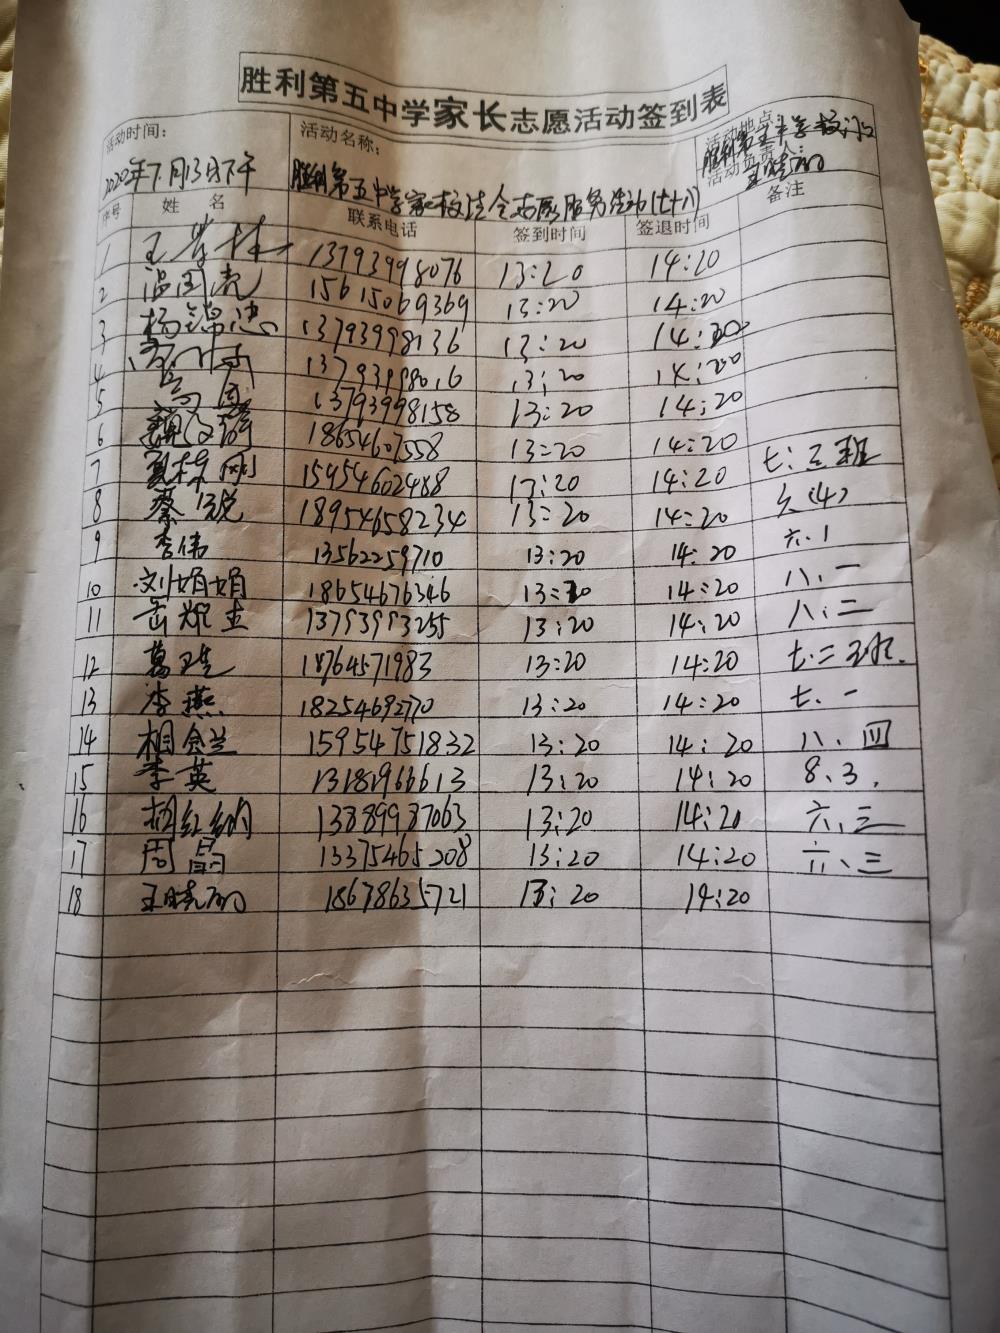 胜利第五中学家长志愿活动签到表
活动时间: 活动名称: 活动地点:
2020年7月13日下午 胜利第五中学家校 志愿服务活动(七十八) 胜利第五中学校门口
活动负责人:
王晓丽
序号 姓 名 联系电话 签到时间 签退时间 备注
1 王 13793998076 13:20 14:20
2 温国亮 15615069369 13:20 14:20
3 杨锦忠 13793998136 13:20 14:20
4 13793998016 13:20 14:20
5 高国 13793998158 13:20 14:20
6 魏 18654607558 13:20 14:20
7 刚 15954602488 13:20 14:20 七:三班
8 蔡 18954658234 13:20 14:20 六(4)
9 李伟 13562259710 13:20 14:20 六.1
10 刘娟娟 18654676346 13:20 14:20 八、一
11 岳 13793993255 13:20 14:20 八、二
12 葛 18764571983 13:20 14:20 七.二班.
13 李燕 18254692770 13:20 14:20 七、一
14 相 兰 15954751832 13:20 14:20 八、四
15 李英 13181966613 13:20 14:20 8、3.
16 红 13889987063 13:20 14:20 六、三
17 周 13375465208 13:20 14:20 六、三
18 王晓丽 18678635721 13:20 14:20